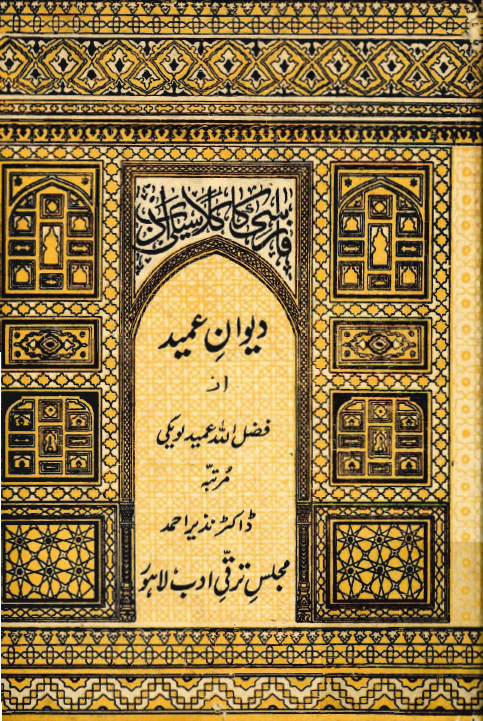 فارسی کا کلاسیکی ادب
دیوانِ عمید
از
فضل اللہ عمید لویکی
مُرتبّہ
ڈاکٹر نذیر احمد
مجلسِ ترقّیِ ادب لاہور